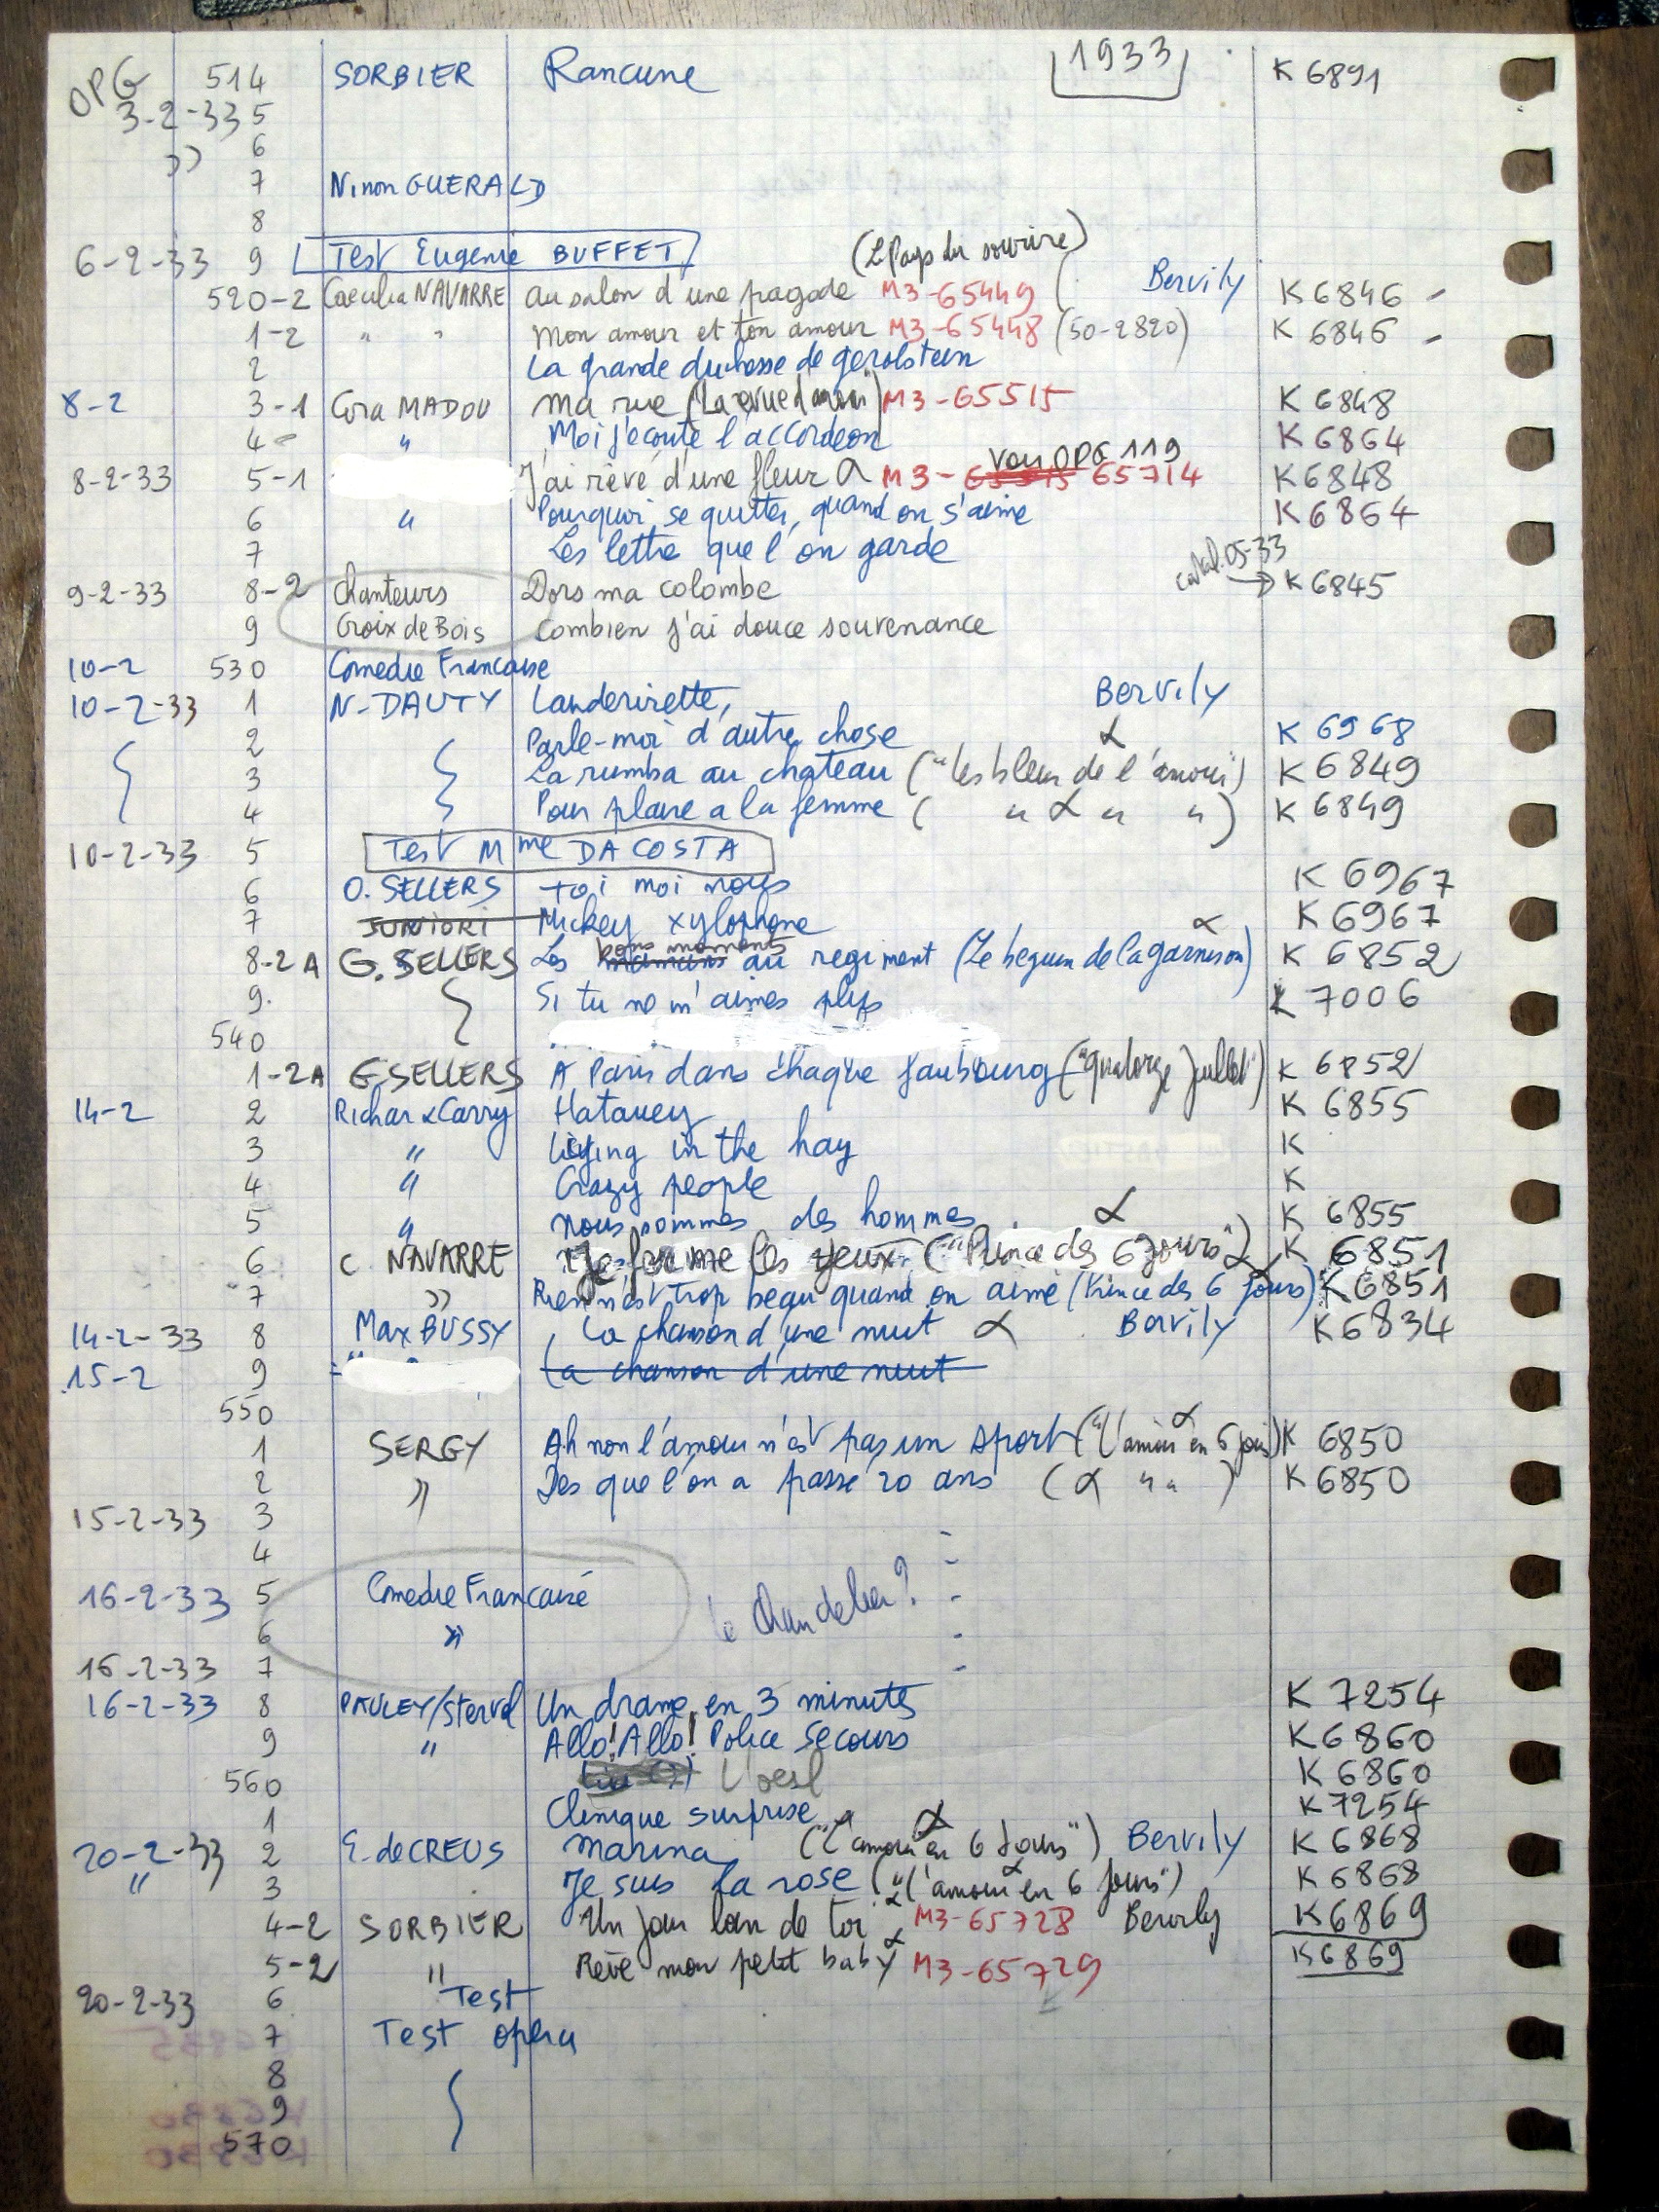 OPG 514 SORBIER Rancune 1933 K 6891
3-2-33 5
" 6
7 Ninon GUERALD
8
6-2-33 9 Test Eugenie BUFFET (Le Pays du sourire)
520-2 Caecilia NAVARRE au salon d'une pagode M3-65449 ( Bervily K 6846 -
1-2 " " Mon amour et ton amour M3-65448 (50-2820) K 6846 -
2 La grande duchesse de gerolstein
8-2 3-1 Cora MADOU Ma rue (La revue d'amour) M3-65515 K 6848
4- " Moi j'ecoute l'accordeon K 6864
Voir OPG 119
8-2-33 5-1 J'ai rêvé d'une fleur α M3- 65714 K 6848
6 " Pourquoi se quitter, quand on s'aime K 6864
7 Les lettre que l'on garde
catal. 05-33
9-2-33 8-2 Chanteurs Dors ma colombe → K 6845
9 Croix de Bois Combien j'ai douce souvenance
10-2 530 Comedie Francaise
10-2-33 1 N. DAUTY Landerirette, Bervily
2 Parle-moi d'autre chose α K 6968
3 La rumba au chateau ("les bleus de l'amour") K 6849
4 Pour plaire a la femme ( " α " " ) K 6849
10-2-33 5 Test Mme DA COSTA
6 O. SELLERS toi moi nous K 6967
7 JUNIORI Mickey xylophone α K 6967
bons moments
8-2A G. SELLERS Les au regiment (Le beguin de la garnison) K 6852
9. Si tu ne m'aimes plus K 7006
540
1-2A G. SELLERS A Paris dans chaque faubourg ("Quatorze Juillet") K 6852
14-2 2 Richar & Carry Hatauey K 6855
3 " Liying in the hay K
4 " Crazy people K
5 " Nous sommes des hommes α K 6855
6 C. NAVARRE Je ferme les yeux ("Prince des 6 jours") α K 6851
7 " Rien n'est trop beau quand on aime (Prince des 6 jours) K 6851
14-2-33 8 Max BUSSY La chanson d'une nuit α Bervily K 6834
15-2 9 La chanson d'une nuit
550
1 SERGY Ah non l'amour n'est pas un sport ("L'amour en 6 jours) α K 6850
2 " Des que l'on a passé 20 ans (α " " ) K 6850
15-2-33 3
4
16-2-33 5 Comedie Francaise le Chandelier?
6 "
16-2-33 7
16-2-33 8 PAULEY/Sterval Un drame en 3 minutes K 7254
9 " Allo! Allo! Police Secours K 6860
560 L'oeil K 6860
1 Clinique surprise K 7254
20-2-33 2 E. de CREUS Marina ("L'amour en 6 Jours") α Bervily K 6868
" 3 Je suis la rose ("L'amour en 6 jours") α K 6868
4-2 SORBIER Un jour loin de toi α M3-65728 Bervily K 6869
5-2 " Rêve mon petit baby α M3-65729 K 6869
20-2-33 6 " Test
7 Test opera
8
9
570